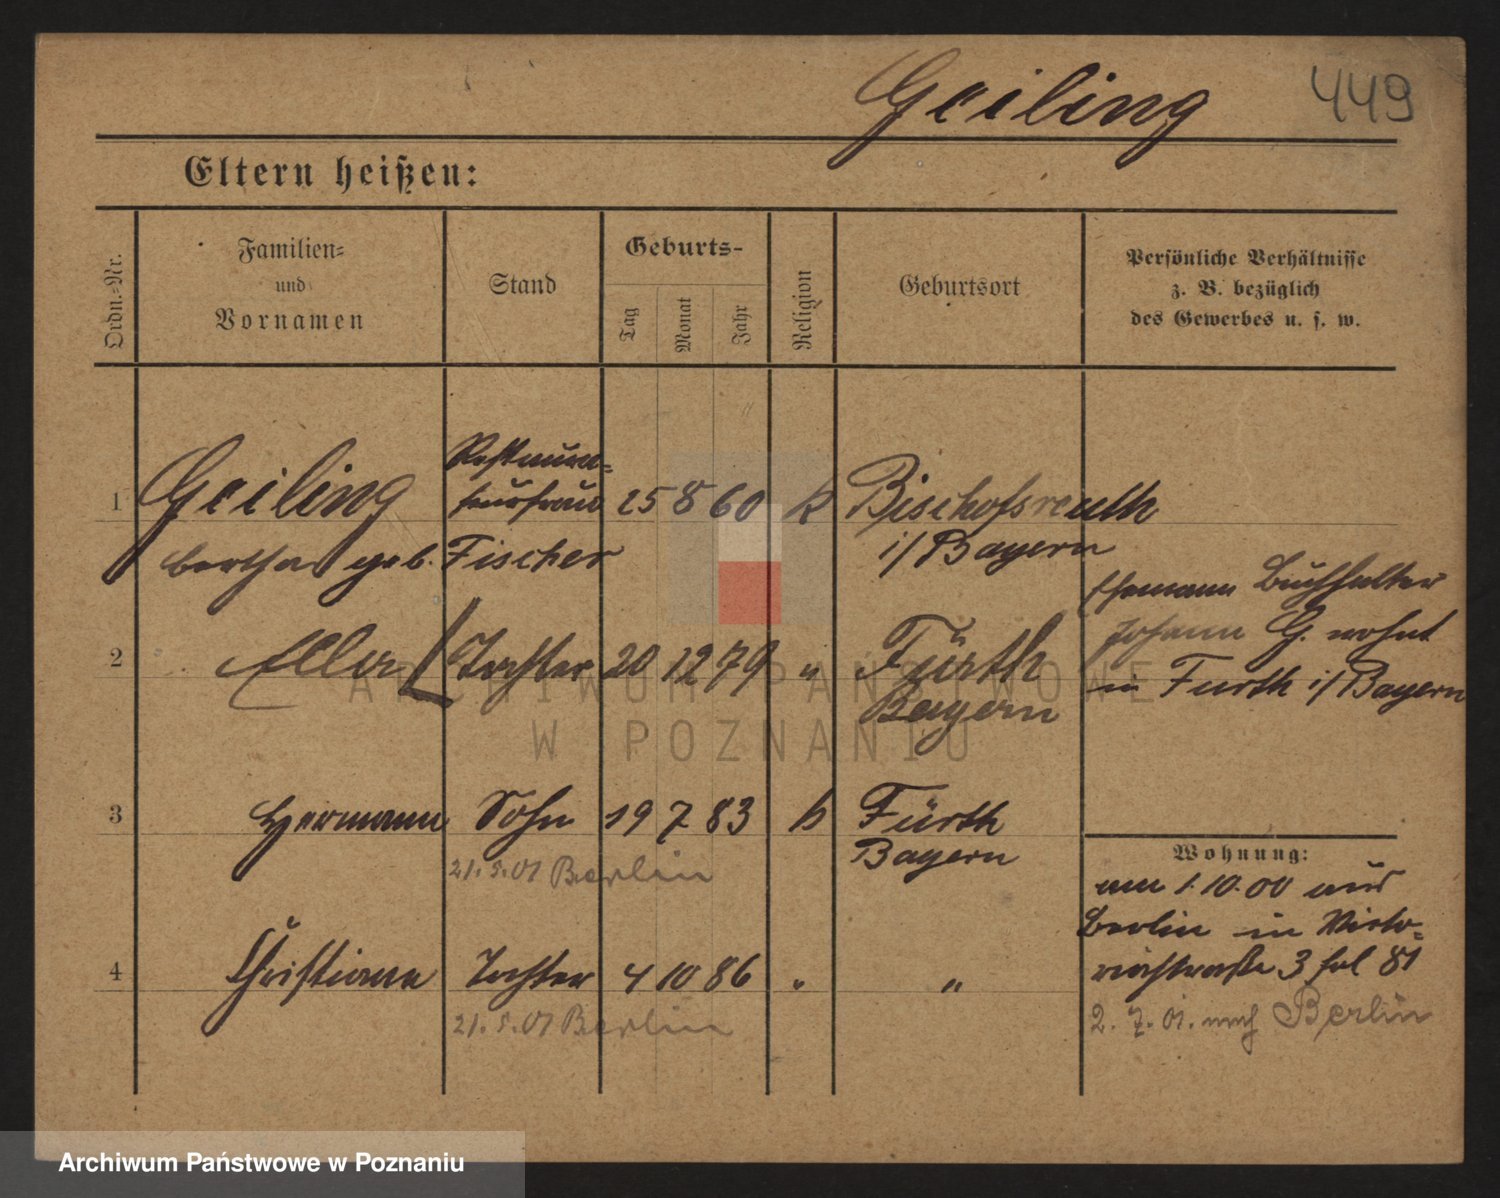 Geiling 449
Eltern heißen:
Ordn.-Nr.
Familien-
und
Vornamen
Stand
Geburts-
Tag
Monat
Jahr
Religion
Geburtsort
Persönliche Verhältnisse
z. B. bezüglich
des Gewerbes u. s. w.
Restaura-
1 Geiling teursfrau 25 8 60 k Bischofsreuth
bertha geb. Fischer i/Bayern
Ehemann Buchhalter
Johann G. wohnt
2 Ella Tochter 20 12 79 " Fürth
in Fürth i/Bayern
Bayern
3 Hermann Sohn 19 7 83 k Fürth
21.5.01 Berlin Bayern
Wohnung:
am 1.10.00 aus
Berlin in Victo-
4 Christiane Tochter 4 10 86 " "
riastraße 3 81
21.5.01 Berlin
2.7.01. nach Berlin
ARCHIWUM PAŃSTWOWE
W POZNANIU
Archiwum Państwowe w Poznaniu